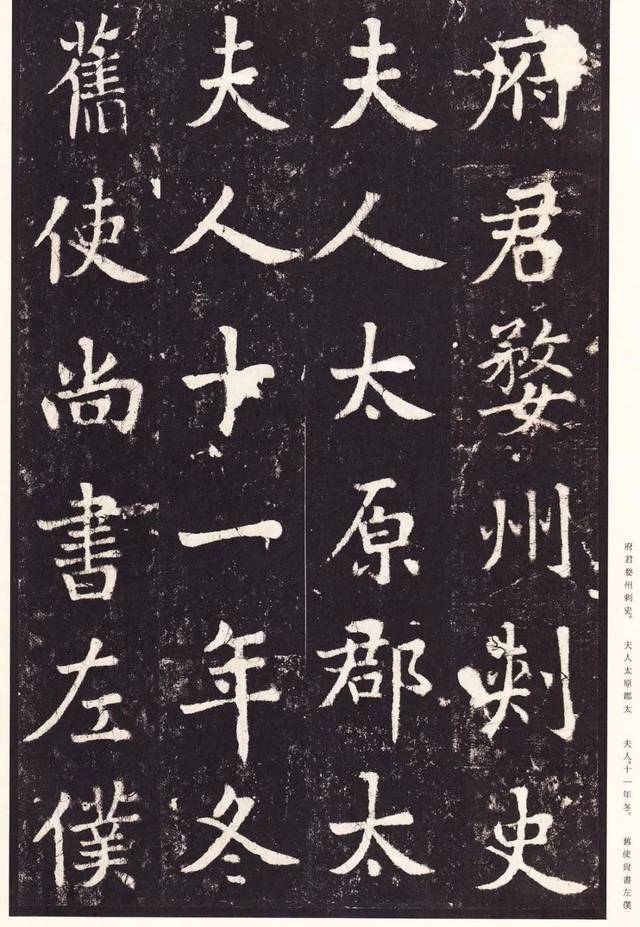 府君婺州刺史
夫人太原郡太
夫人十一年冬
舊使尚書左僕
府君婺州刺史。　夫人太原郡太　夫人。十一年冬。　舊使尙書左僕